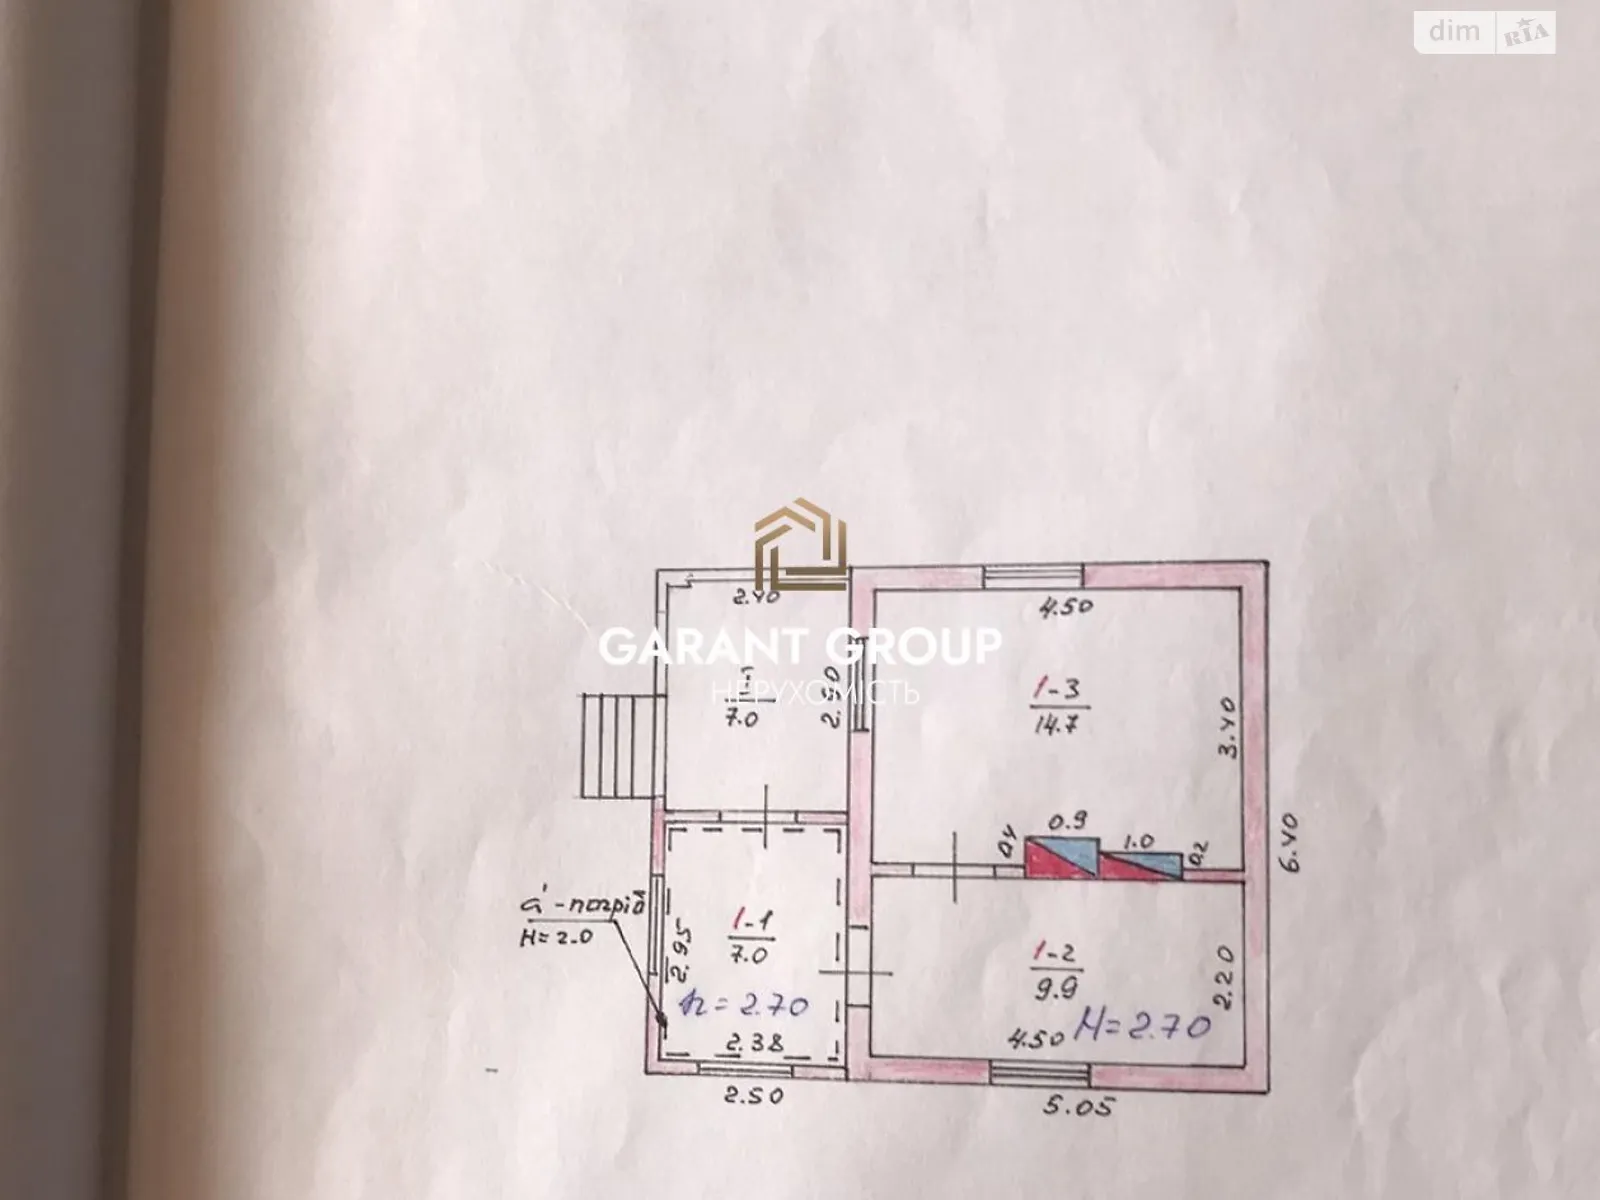 dim RIA
2.40
4.50
GARANT GROUP
НЕРУХОМІСТЬ
7.0
1-3
14.7
3.40
0.9
0.4
1.0
0.2
6.40
а' - погріб
H= 2.0
2.95
1-1
7.0
h = 2.70
2.38
1-2
9.9
2.20
4.50
H= 2.70
2.50
5.05